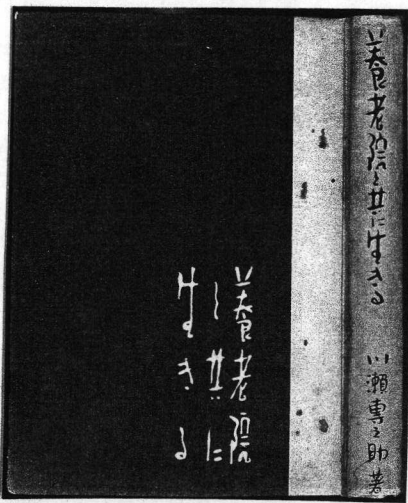 養老院
と共に
生きる
養老院と共に生きる　川瀬専之助著